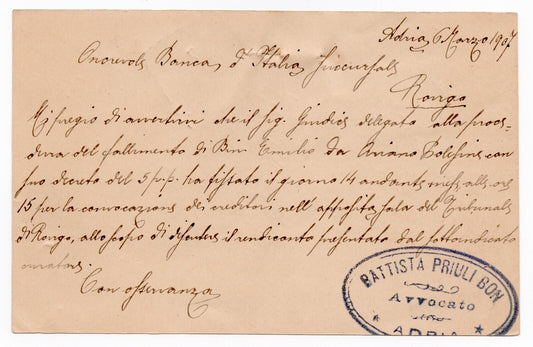 Adria, 6 Marzo 1907
Onorevole Banca d'Italia Succursale
Rovigo
Mi pregio di avvertirvi che il Sig. Giudice delegato alla proce-
dura del fallimento di Bini Emilio da Ariano Polesine con
suo decreto del 5 p.p. ha fissato il giorno 14 andante mese alle ore
15 per la convocazione dei creditori nell'apposita sala del Tribunale
di Rovigo, allo scopo di discutere il rendiconto presentato dal sottoindicato
curatore.
Con osservanza
BATTISTA PRIULI BON
Avvocato
* ADRIA *